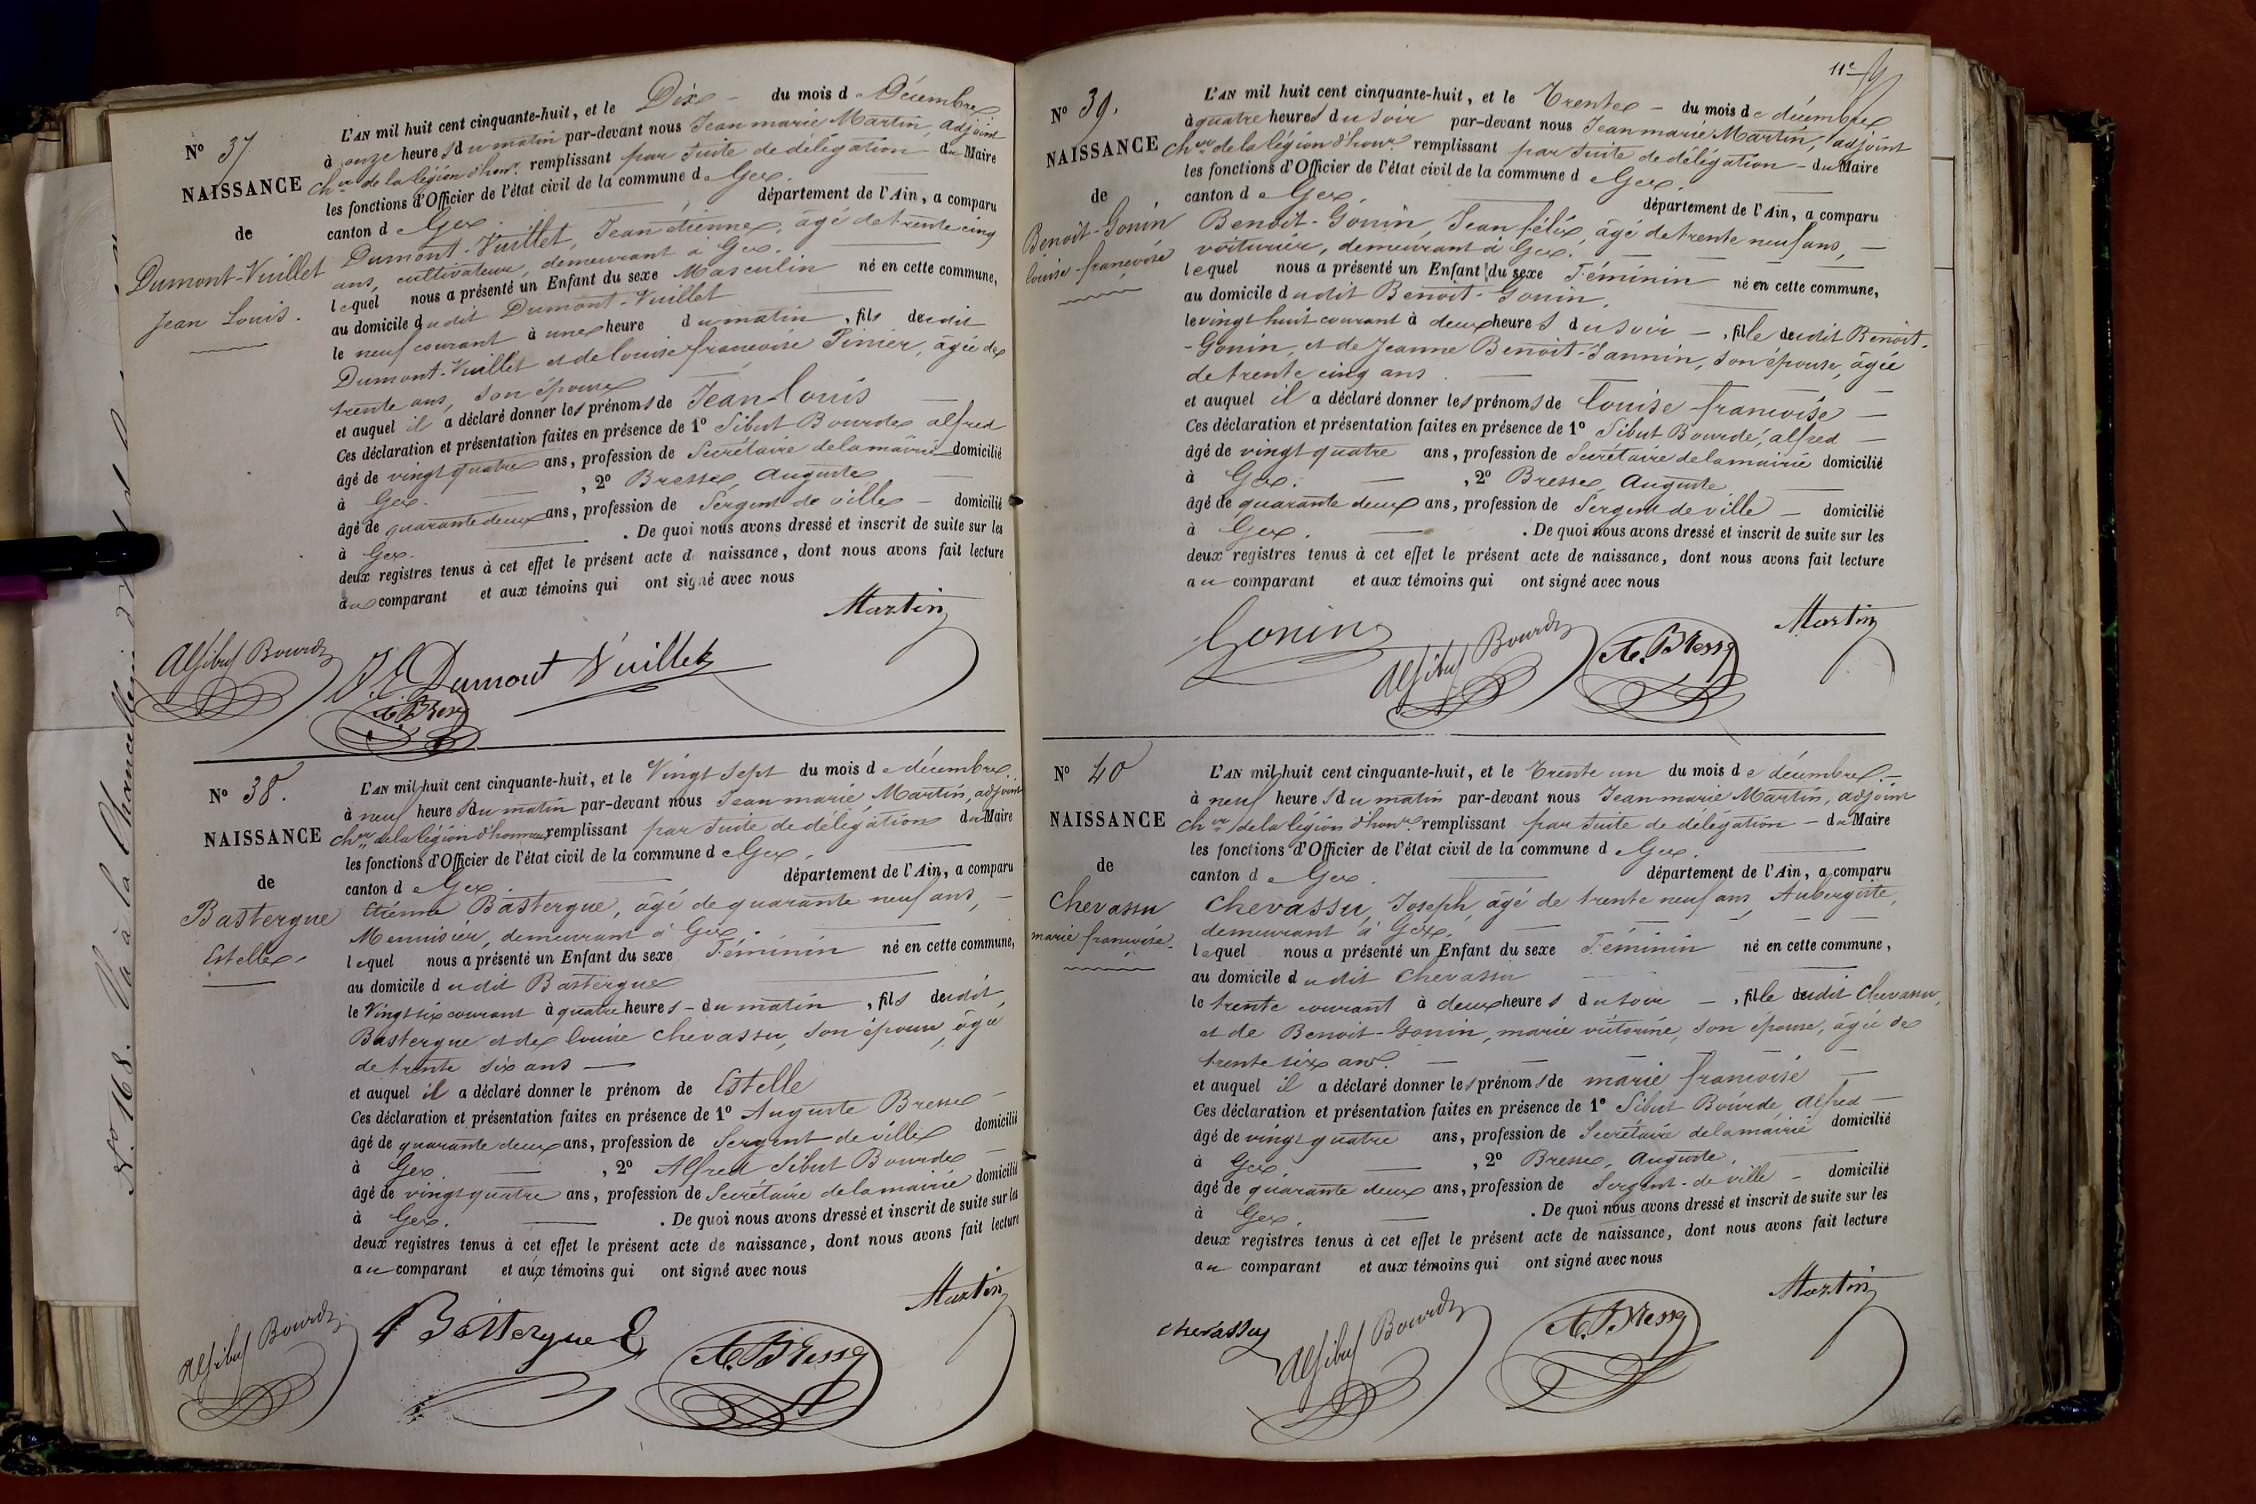 Nº 37
NAISSANCE
de
Dumont-Vuillet
Jean Louis.
L'AN mil huit cent cinquante-huit, et le Dix - du mois de Décembre
à onze heures du matin par-devant nous Jean marie Martin, adjoint
Chev. de la légion d'honr. remplissant par suite de délégation du Maire
les fonctions d'Officier de l'état civil de la commune de Gex.
canton de Gex. département de l'Ain, a comparu
Dumont-Vuillet, Jean etienne, âgé de trente cinq
ans, cultivateur, demeurant à Gex.
lequel nous a présenté un Enfant du sexe Masculin né en cette commune,
au domicile dudit Dumont-Vuillet
le neuf courant à une heure du matin, fils dudit
Dumont-Vuillet et de louise francoise Pinier, âgée de
trente ans, son épouse
et auquel il a déclaré donner les prénoms de Jean Louis
Ces déclaration et présentation faites en présence de 1º Sibut Bourde alfred
âgé de vingt quatre ans, profession de Secrétaire de la mairie domicilié
à Gex. , 2º Bresse, Auguste
âgé de quarante deux ans, profession de Sergent de ville - domicilié
à Gex. . De quoi nous avons dressé et inscrit de suite sur les
deux registres tenus à cet effet le présent acte de naissance, dont nous avons fait lecture
au comparant et aux témoins qui ont signé avec nous
Martin
Al Sibut Bourde
J.E. Dumont Vuillet
A. Bresse
Nº 38.
NAISSANCE
de
Bastergue
Estelle.
L'AN mil huit cent cinquante-huit, et le Vingt sept du mois de décembre
à neuf heures du matin par-devant nous Jean marie Martin, adjoint
chev. de la légion d'honneur remplissant par suite de délégation du Maire
les fonctions d'Officier de l'état civil de la commune de Gex.
canton de Gex département de l'Ain, a comparu
Etienne Bastergue, âgé de quarante neuf ans, -
Menuisier, demeurant à Gex.
lequel nous a présenté un Enfant du sexe Féminin né en cette commune,
au domicile dudit Bastergue
le Vingt six courant à quatre heures - du matin, fils dudit
Bastergue et de louise Chevassu, son épouse, âgée
de trente six ans
et auquel il a déclaré donner le prénom de Estelle
Ces déclaration et présentation faites en présence de 1º Auguste Bresse
âgé de quarante deux ans, profession de Sergent de ville domicilié
à Gex. , 2º Alfred Sibut Bourde
âgé de vingt quatre ans, profession de Secrétaire de la mairie domicilié
à Gex. . De quoi nous avons dressé et inscrit de suite sur les
deux registres tenus à cet effet le présent acte de naissance, dont nous avons fait lecture
au comparant et aux témoins qui ont signé avec nous
Martin
Al Sibut Bourde
Bastergue E
A. Bresse
Nº 168. Va à la
11e
Nº 39.
NAISSANCE
de
Benoit-Gonin
louise-francoise
L'AN mil huit cent cinquante-huit, et le Trente - du mois de décembre
à quatre heures du soir par-devant nous Jean marie Martin, adjoint
Chev. de la légion d'honr. remplissant par suite de délégation - du Maire
les fonctions d'Officier de l'état civil de la commune de Gex.
canton de Gex. département de l'Ain, a comparu
Benoit-Gonin, Jean félix, âgé de trente neuf ans, -
voiturier, demeurant à Gex.
lequel nous a présenté un Enfant du sexe Féminin né en cette commune,
au domicile dudit Benoit-Gonin,
le vingt huit courant à deux heures du soir - , fille dudit Benoit-
-Gonin, et de Jeanne Benoit-Jannin, son épouse, âgée
de trente cinq ans.
et auquel il a déclaré donner les prénoms de louise francoise
Ces déclaration et présentation faites en présence de 1º Sibut Bourde, alfred
âgé de vingt quatre ans, profession de Secrétaire de la mairie domicilié
à Gex. , 2º Bresse, Auguste
âgé de quarante deux ans, profession de Sergent de ville - domicilié
à Gex. . De quoi nous avons dressé et inscrit de suite sur les
deux registres tenus à cet effet le présent acte de naissance, dont nous avons fait lecture
au comparant et aux témoins qui ont signé avec nous
Gonin
Al Sibut Bourde
A. Bresse
Martin
Nº 40
NAISSANCE
de
Chevassu
marie francoise.
L'AN mil huit cent cinquante-huit, et le Trente un du mois de décembre. -
à neuf heures du matin par-devant nous Jean marie Martin, adjoint
Chev. de la légion d'honr. remplissant par suite de délégation - du Maire
les fonctions d'Officier de l'état civil de la commune de Gex.
canton de Gex. département de l'Ain, a comparu
Chevassu, Joseph, âgé de trente neuf ans, Aubergiste,
demeurant à Gex.
lequel nous a présenté un Enfant du sexe Féminin né en cette commune,
au domicile dudit Chevassu
le trente courant à deux heures du soir - , fille dudit Chevassu,
et de Benoit-Gonin, marie victorine, son épouse, âgée de
trente six ans.
et auquel il a déclaré donner les prénoms de marie francoise
Ces déclaration et présentation faites en présence de 1º Sibut Bourde, Alfred
âgé de vingt quatre ans, profession de Secrétaire de la mairie domicilié
à Gex. , 2º Bresse, Auguste,
âgé de quarante deux ans, profession de Sergent-de ville - domicilié
à Gex. . De quoi nous avons dressé et inscrit de suite sur les
deux registres tenus à cet effet le présent acte de naissance, dont nous avons fait lecture
au comparant et aux témoins qui ont signé avec nous
Martin
Chevassu
Al Sibut Bourde
A. Bresse